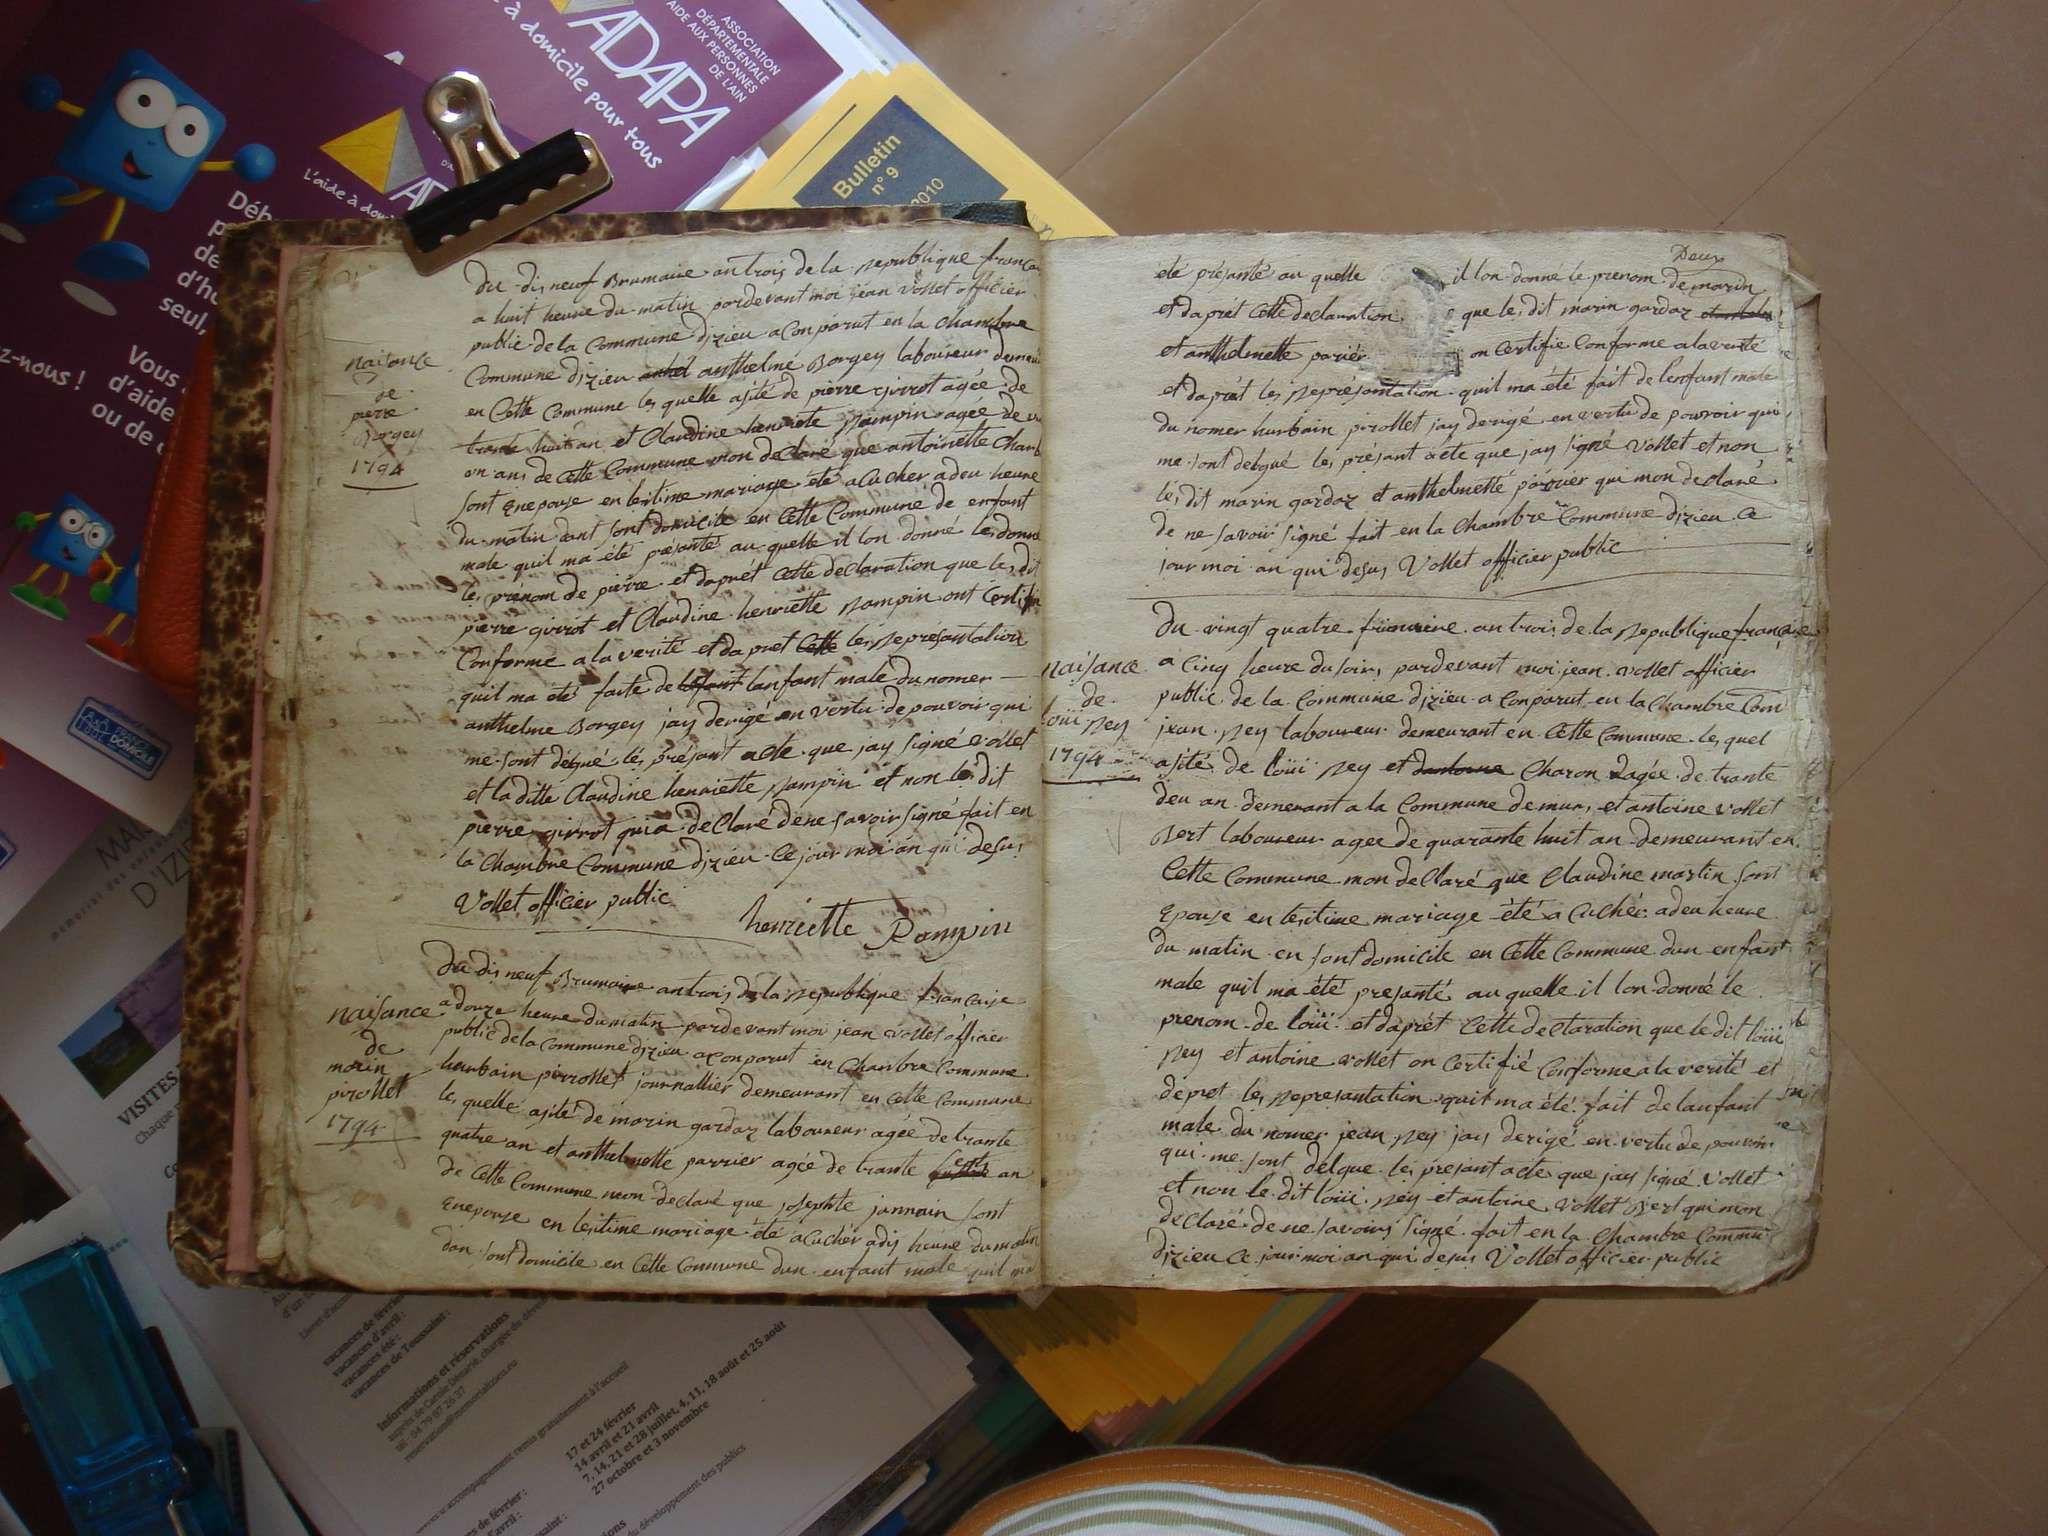 ADAPA
ASSOCIATION
DÉPARTEMENTALE
AIDE AUX PERSONNES
DE L'AIN
à domicile pour tous
Bulletin
n° 9
2010
L'aide à domi
Vous
d'aide
ou de
z-nous !
seul,
FRANCE
DOMICILE
D'IZIE
VISITES
Chaque
naisance
de
pierre
Borgey
1794
du dis neuf Brumaire an trois de la republique francai
a huit heure du matin pardevant moi jean vollet officier
public de la Commune dizieu a Conparut en la chambre
Commune dizieu anthelme Borgey laboureur demeu
en Cette Commune les quelle asité de pierre girrot agée de
trante huit an et Claudine henriete rampin agée de
on ans de Cette Commune mon declaré que antoinette Charb
sont Enepouse en lesitime mariage été a Cucher a deu heure
du matin dant sont domicile en Cette Commune de enfant
male quil ma été présanté au quelle il lon donné les donné
les prénom de pierre et daprét Cette declaration que les dit
pierre girrot et Claudine henriette rampin ont Certifi
Conforme a la verité et da pret Cette les represantation
quil ma été faite de lanfant male du nomer
anthelme Borgey jay derigé en vertu de pouvoir qui
me sont délgué les présant acte que jay signé vollet
et la ditte Claudine henriette rampin et non le dit
pierre girrot qui a declaré de ne savoir signé fait en
la Chambre Commune dizieu Ce jour moi an qui desus
Vollet officier public
henriette Rampin
naisance
de
marin
pirollet
1794
du dis neuf Brumaire an trois de la republique francaise
a douze heure du matin pardevant moi jean vollet officier
public de la Commune dizieu a Conparut en Chambre Commune
hurbain pirrollet journallier demeurant en Cette Commune
les quelle asité de marin gardaz laboureur agée de trante
quatre an et anthelmette parrier agée de trante sest an
de Cette Commune mon declaré que josephte jannain sont
Enepouse en lesitime mariage été a Cuchér a dis heure du matin
dan sont domicile en Cette Commune dun enfant male quil ma
Deux
été présanté au quelle il lon donné le prenom de marin
et daprét Cette declaration que les dit marin gardaz
et anthelmette pariér on Certifie Conforme a la verité
et daprét les représantation quil ma été fait de lenfant male
du nomer hurbain pirollet jay derigé en vertu de pouvoir qui
me sont delgué les présant acte que jay signé vollet et non
les dit marin gardaz et anthelmette parriér qui mon declaré
de ne savoir signé fait en la Chambre Commune dizieu Ce
jour moi an qui desus Vollet officier public
naisance
de
loüi rey
1794
du vingt quatre frimaire an trois de la republique française
a cinq heure du soir pardevant moi jean vollet officier
public de la Commune dizieu a Conparut en la Chambre Com
jean rey laboureur demeurant en Cette Commune les quel
asité de loüi rey et Charon agée de trante
deu an demeurant a la Commune de murs et antoine vollet
Bert laboureur agee de quarante huit an demeurant en
Cette Commune mon declaré que Claudine martin sont
Epouse en lesitime mariage été a Cuchér a deu heure
du matin en sont domicile en Cette Commune dun enfant
male quil ma été presanté au quelle il lon donné le
prenom de loüi et daprét Cette declaration que le dit loüi
rey et antoine vollet on Certifié Conforme a la verité et
depret les represantation quil ma été fait de lanfant
male du nomer jean rey jay derigé en vertu de pouvoir
qui me sont délgue les presant acte que jay signé vollet
et non le dit loüi rey et antoine vollet Bert qui mon
declaré de ne savoirs signé fait en la Chambre Commu
dizieu Ce jour moi an qui desus Vollet officier public
vacances de février
vacances d'avril :
vacances été :
vacances de Toussaint :
Informations et réservations
accompagnement remis gratuitement à l'accueil
17 et 24 février
14 avril et 21 avril
7, 14, 21 et 28 juillet, 4, 11, 18 août et 25 août
27 octobre et 3 novembre
du développement des publics